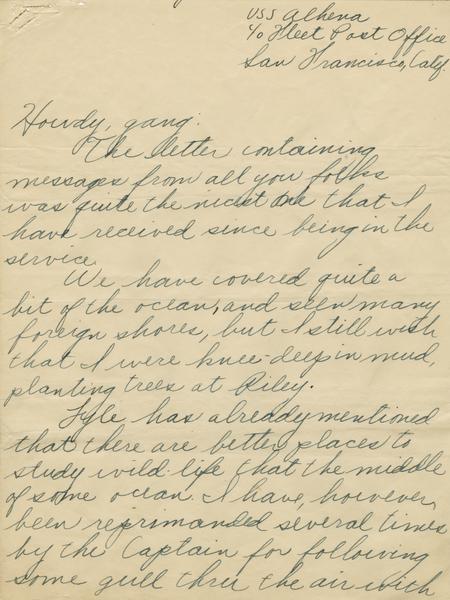 USS Athena
℅ Fleet Post Office
San Francisco, Calif.
Howdy, gang:
The letter containing
messages from all you folks
was quite the nicest one that I
have received since being in the
service.
We have covered quite a
bit of the ocean, and seen many
foreign shores, but I still wish
that I were knee-deep in mud,
planting trees at Riley.
Lyle has already mentioned
that there are better places to
study wild-life that the middle
of some ocean. I have, however,
been reprimanded several times
by the Captain for following
some gull thru the air with